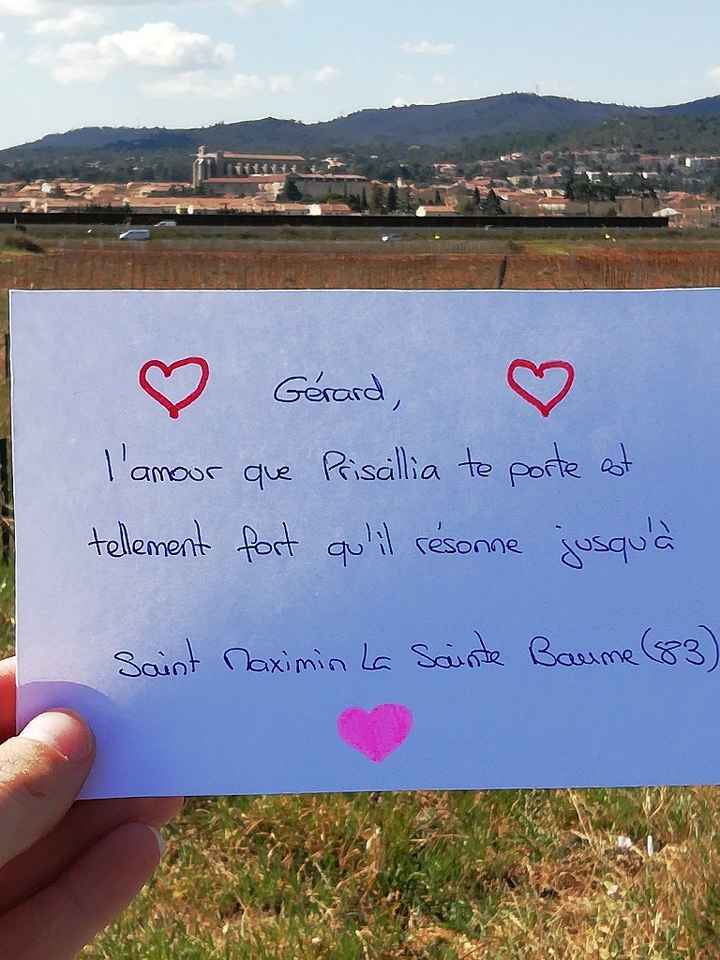 Gérard,
l'amour que Priscillia te porte est
tellement fort qu'il résonne jusqu'à
Saint Maximin La Sainte Baume (83)